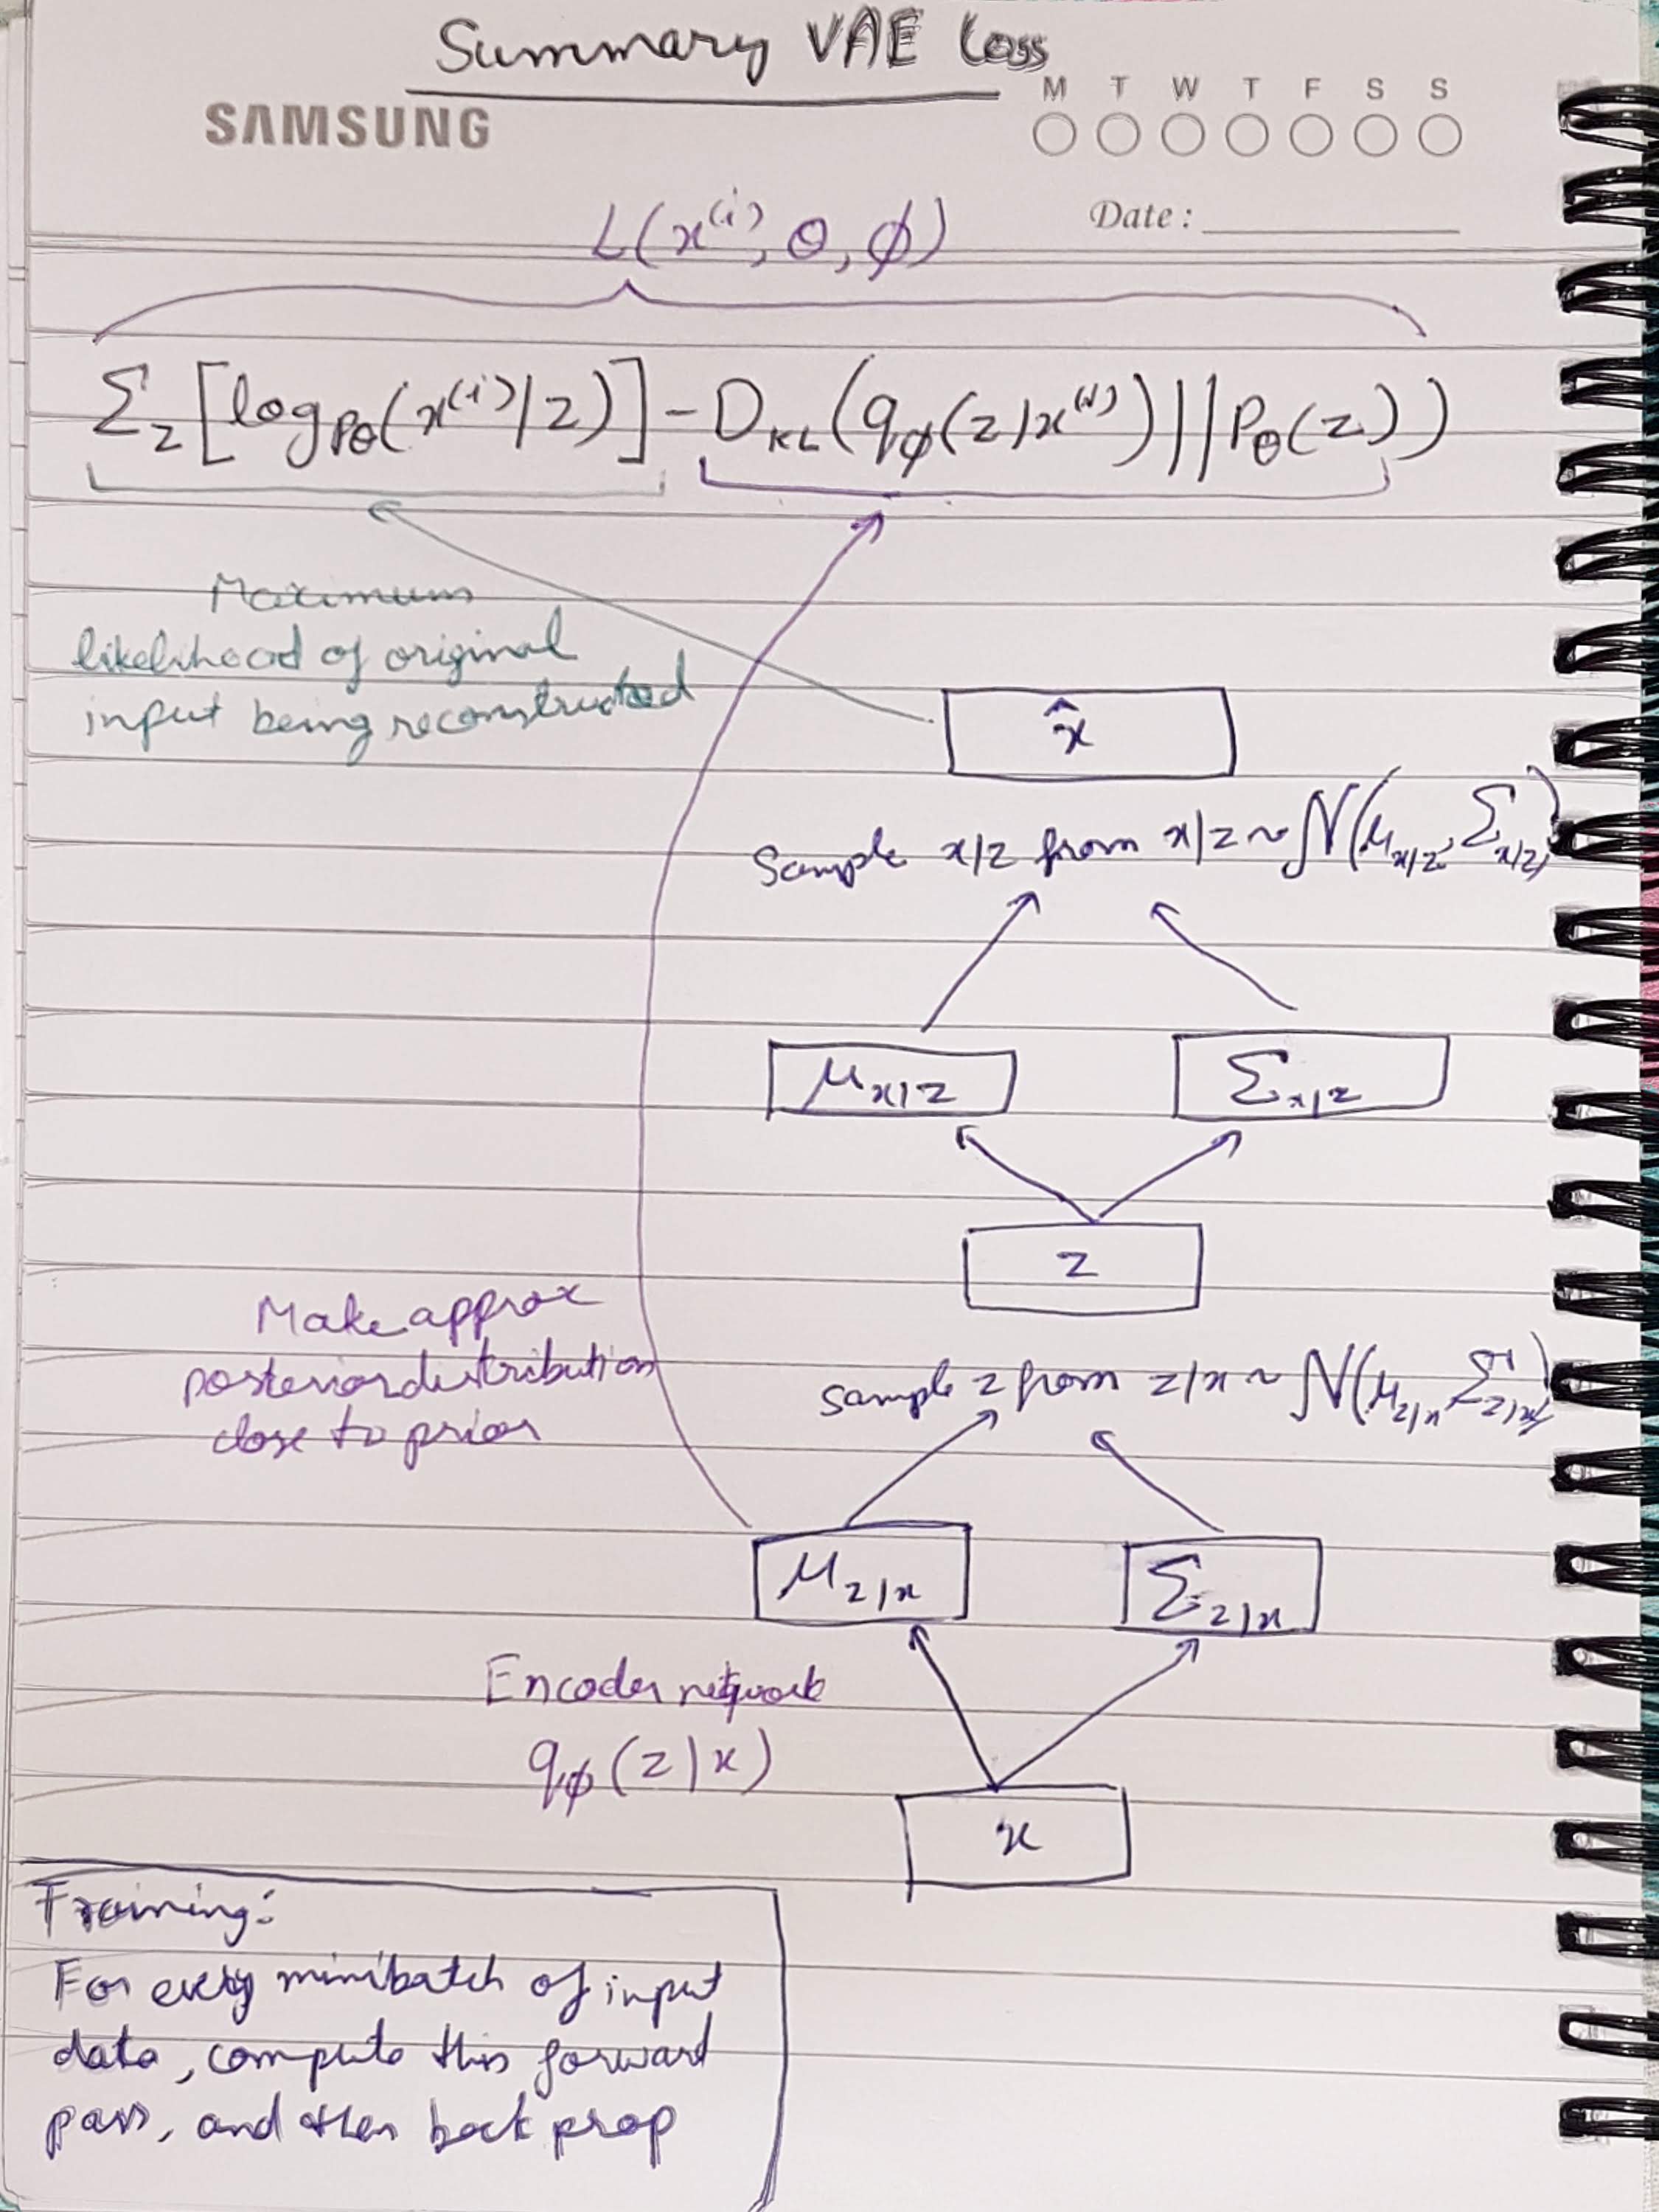 Summary VAE Loss
SAMSUNG
M T W T F S S
Date :
L(x⁽ⁱ⁾, θ, ϕ)
Σ_z [log_{Pθ}(x⁽ⁱ⁾|z)] - D_{KL}(q_ϕ(z|x⁽ⁱ⁾)||P_θ(z)))
Maximum
likelihood of original
input being reconstructed
x̂
Sample x|z from x|z ~ N(μ_{x|z}, Σ_{x|z})
μ_{x|z}
Σ_{x|z}
z
Make approx
posterior distribution
close to prior
Sample z from z|x ~ N(μ_{z|x}, Σ_{z|x})
μ_{z|x}
Σ_{z|x}
Encoder network
q_ϕ(z|x)
x
Training:
For every minibatch of input
data, compute this forward
pass, and then back prop